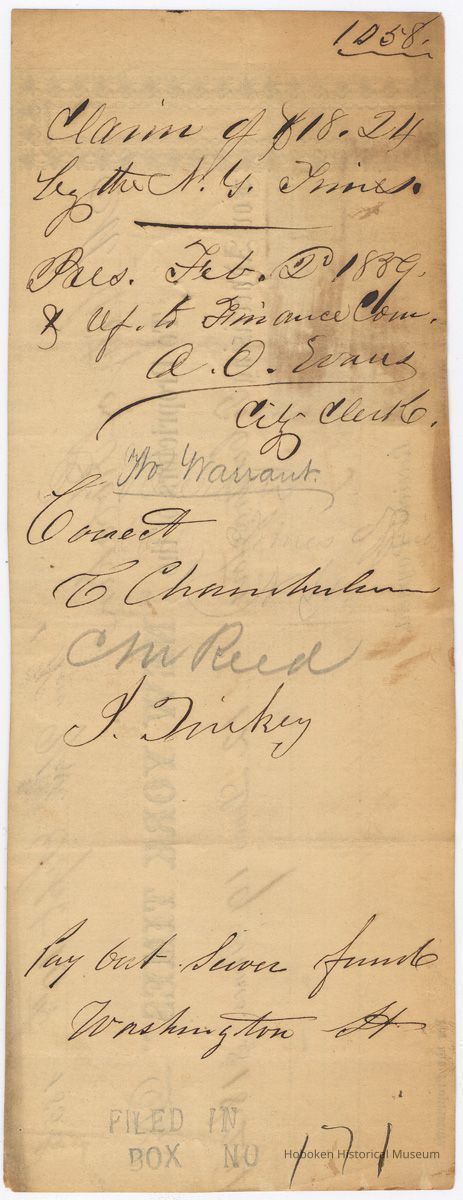 1058.
Claim of $18.24
by the N. Y. Times.
Pres. Feb. 2d 1859.
& ref. to Finance Com.
A. O. Evans
City Clerk.
No Warrant.
Correct
C Chamberlain
C M Reed
J. Tinkey
Pay out Sewer fund
Washington St
FILED IN
BOX NO 171
Hoboken Historical Museum